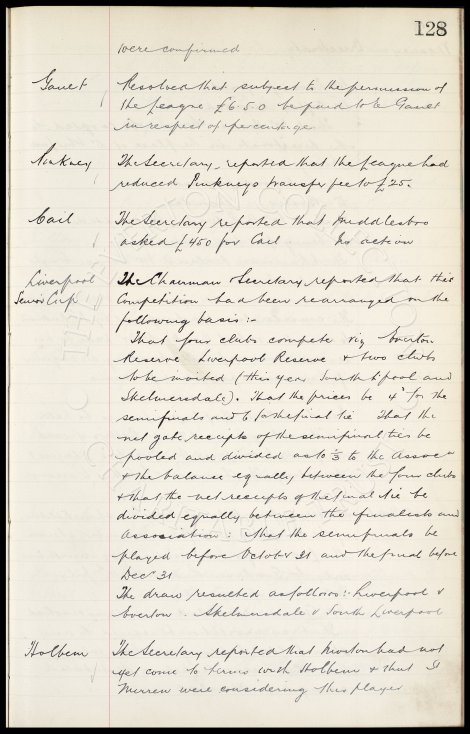 128
were confirmed
Gault Resolved that subject to the permission of
the League £650 be paid to W Gault
in respect of percentage
Pinkney The Secretary reported that the League had
reduced Pinkneys transfer fee to £25.
Cail The Secretary reported that Middlesbro
asked £450 for Cail No action
Liverpool The Chairman & Secretary reported that this
Senior Cup Competition had been rearranged on the
following basis:-
That four clubs compete viz Everton
Reserve Liverpool Reserve & two clubs
to be invited (this year South L'pool and
Skelmersdale). That the prices be 4d for the
semifinals and 6d for the final tie That the
net gate receipts of the semifinal ties be
pooled and divided as to ⅓ to the Assocn
& the balance equally between the four clubs
& that the net receipts of the final tie be
divided equally between the finalists and
Association: that the semifinals be
played before Octobr 31 and the final before
Decr 31
The draw resulted as follows:- Liverpool v
Everton. Skelmersdale v South Liverpool
Holbem The Secretary reported that Morton had not
yet come to terms with Holbem & that St
Mirren were considering this player